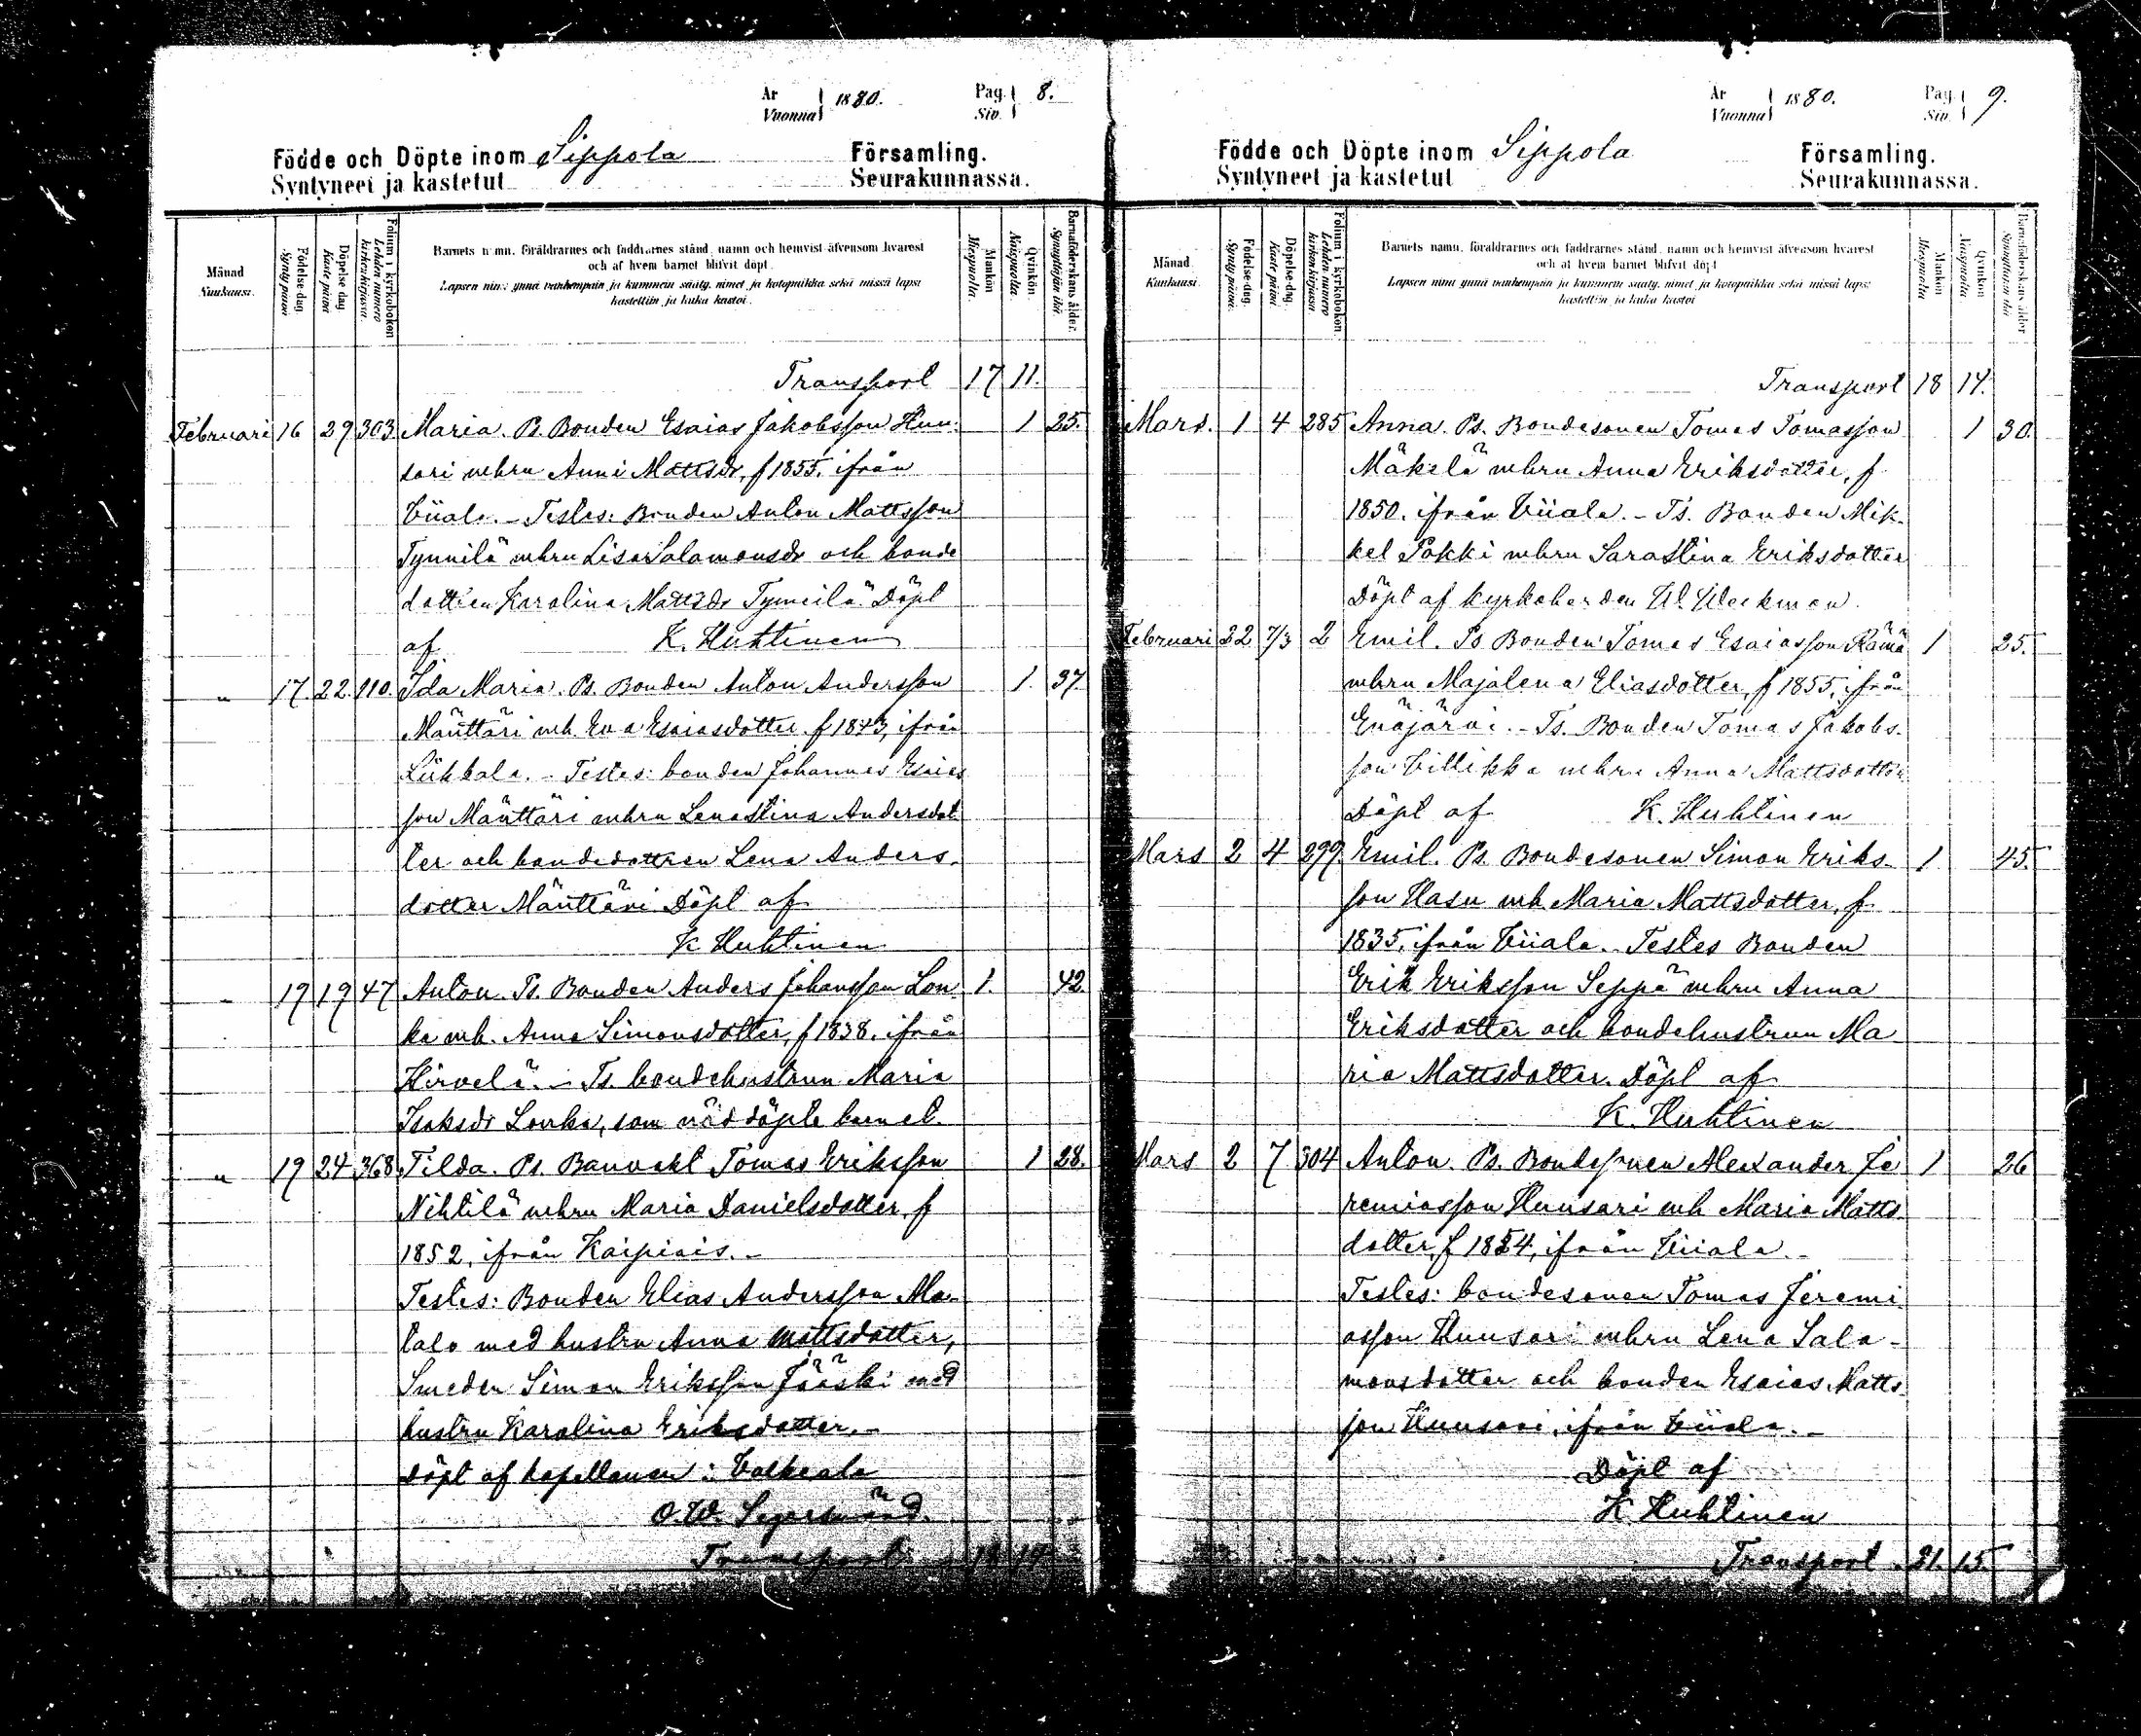 År Vuonna 1880. Pag. Siv. 8.
Födde och Döpte inom Sippola Församling.
Syntyneet ja kastetut Seurakunnassa.
Månad Kuukausi.
Födelse-dag. Synty päivä
Döpelse dag Kaste päivä
Folium i kyrkoboken Lehden numero kirkonkirjassa.
Barnets namn, föräldrarnes och faddrarnes stånd, namn och hemvist äfvensom hvarest
och af hvem barnet blifvit döpt
Lapsen nimi ynnä vanhempain ja kummein sääty, nimet ja kotopaikka sekä missä lapsi
kastettiin ja kuka kastoi.
Mankön Miespuolta.
Qvinkön. Naispuolta.
Barnaföderskans ålder. Synnyttäjän ikä
Transport 17 11.
Februari 16 29 303. Maria. Ps. Bonden Esaias Jakobsson Huu- 1 25.
sari mhru Anni Mattsdr, f 1855. ifrån
Viiala. - Testes: Bonden Anton Mattsson
Tynnilä mhru Lisa Salamonsdr och bonde
dottren Karolina Mattsdr Tynnilä. Döpt
af K. Huhtinen
" 17. 22. 110. Ida Maria. Ps. Bonden Anton Andersson 1. 37.
Mänttäri mh. Eva Esaiasdotter f 1843, ifrån
Liikkala. - Testes: bonden Johannes Esaias
son Mänttäri mhru Lenastina Andersdot
ter och bondedottren Lena Anders-
dotter Mänttäri Döpt af
K Huhtinen
" 19 19 47 Anton. Ps. Bonden Anders Johansson Lon 1. 42.
ka mh. Anna Simonsdotter, f 1838. ifrån
Hirvelä. - Ts. bondehustrun Maria
Isaksdr Lonka, som nöddöpte barnet.
" 19 24 368. Tilda. Ps. Banvakt Tomas Eriksson 1 28.
Nihtilä mhru Maria Danielsdotter, f
1852, ifrån Kaipiais. -
Testes: Bonden Elias Andersson Ma-
talo med hustru Anna Mattsdotter,
Smeden Simon Eriksson Jääski med
hustru Karolina Eriksdotter. -
Döpt af kapellanen i Valkeala
O. W. Segerstråd.
Transport 18 14
År Vuonna 1880. Pag. Siv. 9.
Födde och Döpte inom Sippola Församling.
Syntyneet ja kastetut Seurakunnassa.
Månad Kuukausi.
Födelse-dag. Synty päivä.
Döpelse-dag. Kaste päivä
Folium i kyrkoboken. Lehden numero kirkonkirjassa.
Barnets namn, föräldrarnes och faddrarnes stånd, namn och hemvist äfvensom hvarest
och af hvem barnet blifvit döpt
Lapsen nimi ynnä vanhempain ja kummein sääty, nimet ja kotopaikka sekä missä lapsi
kastettiin ja kuka kastoi
Mankön Miespuolta
Qvinkön Naispuolta.
Barnaföderskans ålder Synnyttäjän ikä
Transport 18 14.
Mars. 1 4 285 Anna. Ps. Bondesonen Tomas Tomasson 1 30.
Mäkelä mhru Anna Eriksdotter, f
1850. ifrån Viiala. - Ts. Bonden Mik-
kel Pokki mhru Sarastina Eriksdotter
Döpt af kyrkoherden W. Weckman.
Februari 22 7/3 2 Emil. Ps Bonden Tomas Esaiasson Rämä 1 25.
mhru Majalena Eliasdotter, f 1855, ifrån
Enäjärvi. - Ts. Bonden Tomas Jakobs-
son Villikka mhru Anna Mattsdotter
Döpt af K. Huhtinen
Mars 2 4 299 Emil. Ps. Bondesonen Simon Eriks- 1 45.
son Hasu mh. Maria Mattsdotter, f
1835, ifrån Viiala. Testes Bonden
Erik Eriksson Seppä mhru Anna
Eriksdotter och bondehustrun Ma
ria Mattsdotter. Döpt af
K. Huhtinen
Mars 2 7 304 Anton. Ps. Bondesonen Alexander Je 1 26
remiasson Huusari mh Maria Matts
dotter, f 1854, ifrån Viiala. -
Testes: bondesonen Tomas Jeremi
asson Huusari mhru Lena Sala-
monsdotter och bonden Esaias Matts
son Huusari, ifrån Viiala. -
Döpt af
K Huhtinen
Transport 21. 15.